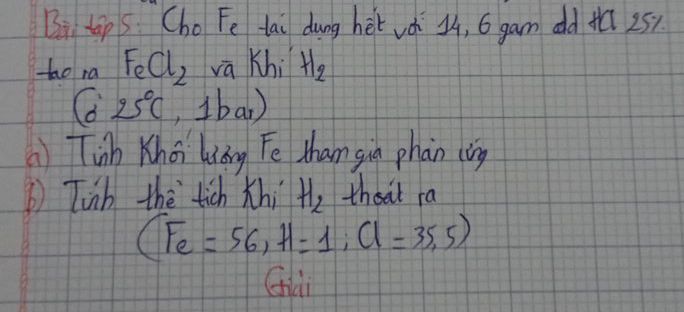 Bài tập 5: Cho Fe tác dụng hết với 14,6 gam dd HCl 25%.
tạo ra FeCl₂ và Khí H₂
(ở 25°C, 1bar)
a) Tính Khối lượng Fe tham gia phản ứng
b) Tính thể tích Khí H₂ thoát ra
(Fe = 56, H = 1; Cl = 35,5)
Giải